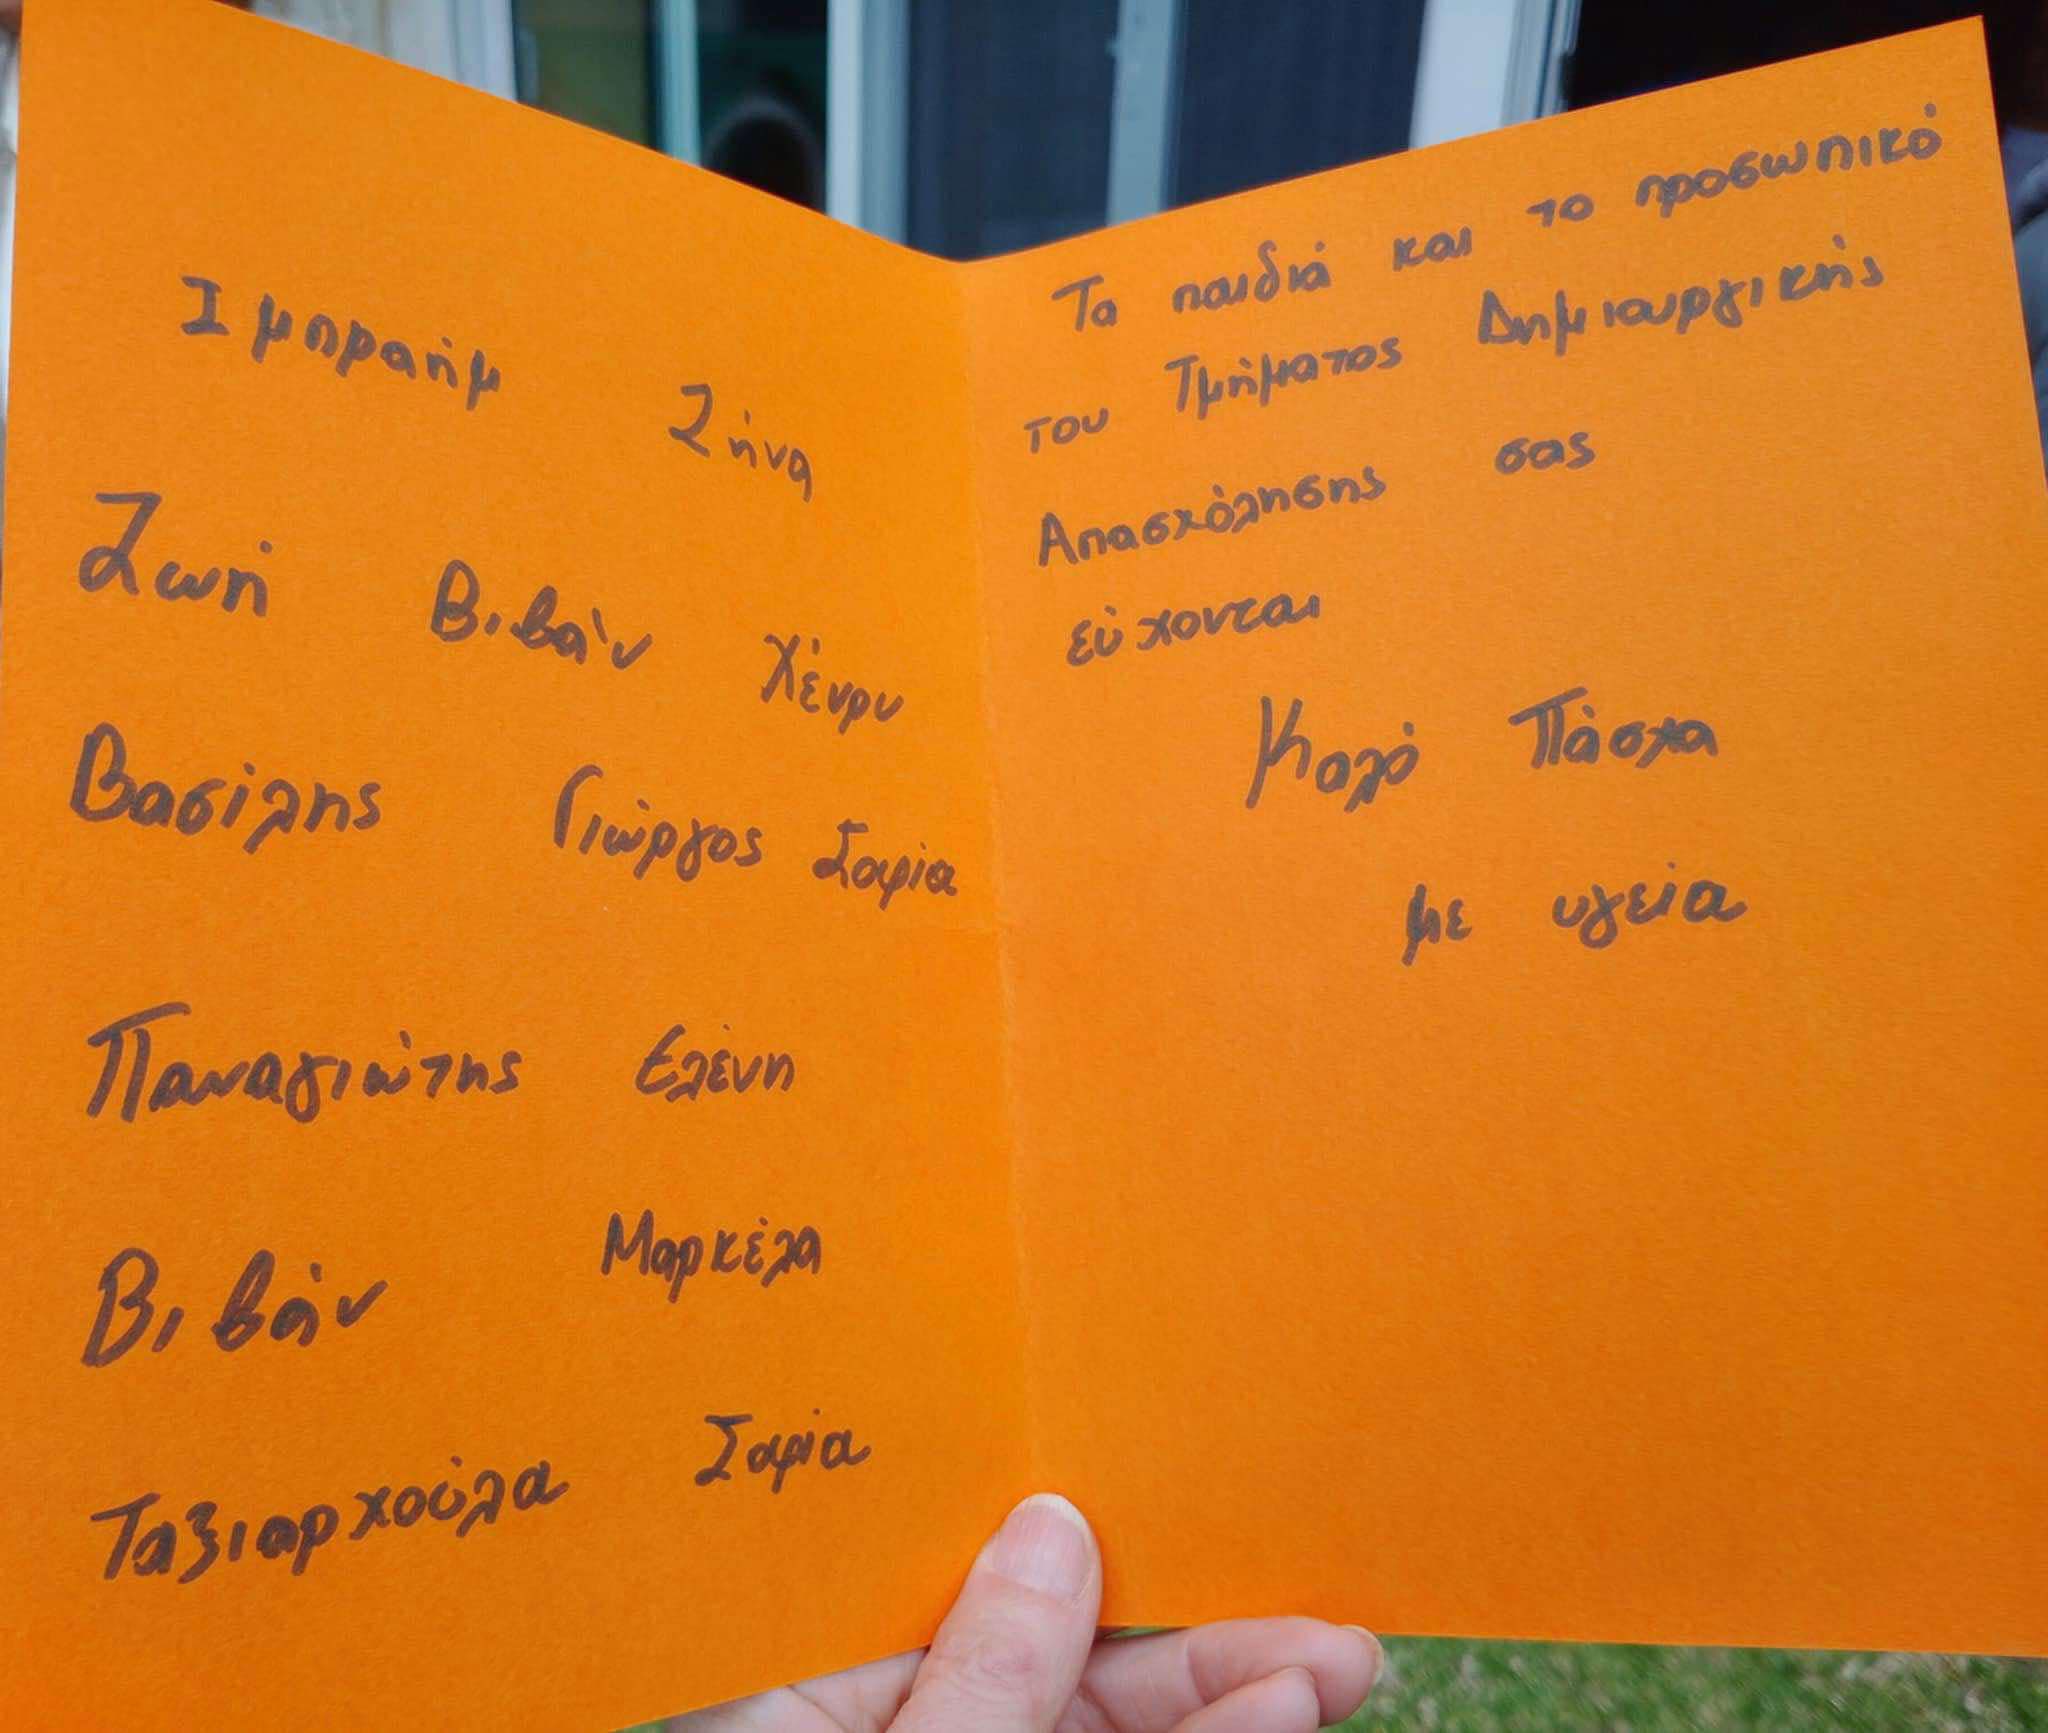 Ιμπραήμ Ζήνα
Ζωή Βιβάν Χένρυ
Βασίλης Γιώργος Σαφία
Παναγιώτης Ελένη
Βιβάν Μαρκέλα
Ταξιαρχούλα Σαφία
Τα παιδιά και το προσωπικό
του Τμήματος Δημιουργικής
Απασχόλησης σας
εύχονται
Καλό Πάσχα
με υγεία